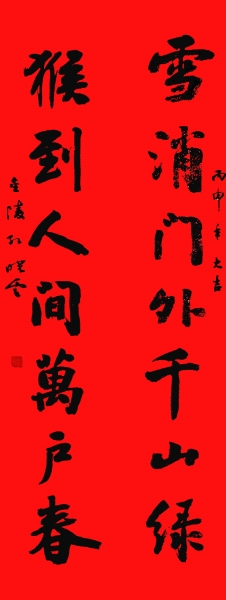 丙申年大吉
雪消门外千山绿
猴到人间萬户春
金陵孙晓云